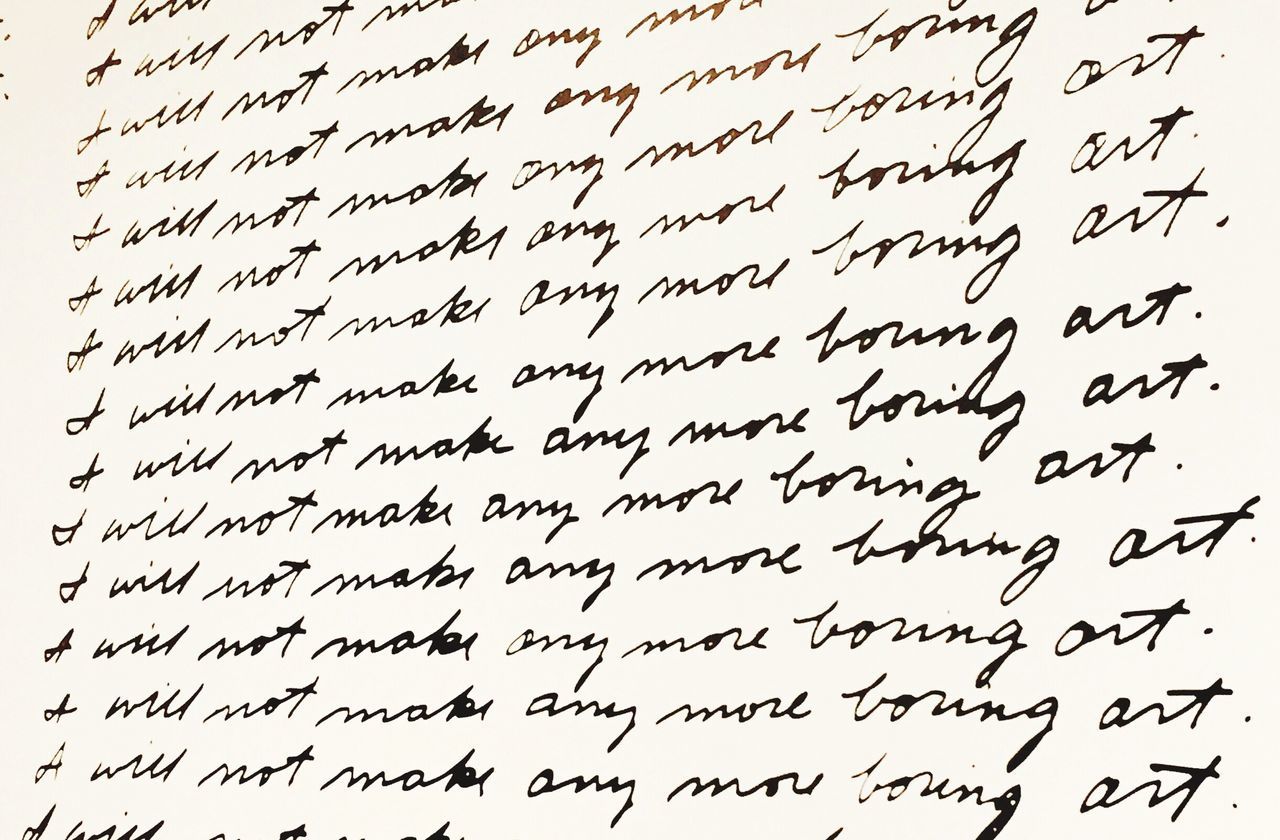 I will
I will not
I will not make any more
I will not make any more boring
I will not make any more boring art.
I will not make any more boring art.
I will not make any more boring art.
I will not make any more boring art.
I will not make any more boring art.
I will not make any more boring art.
I will not make any more boring art.
I will not make any more boring art.
I will not make any more boring art.
I will not make any more boring art.
I will not make